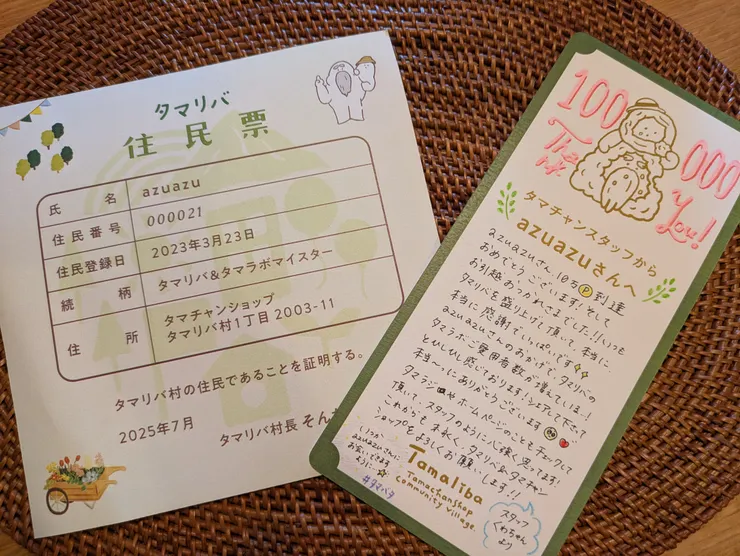 タマリバ
住民票
氏名 azuazu
住民番号 000021
住民登録日 2023年3月23日
続柄 タマリバ&タマラボマイスター
住所 タマチャンショップ
タマリバ村1丁目 2003-11
タマリバ村の住民であることを証明する。
2025年7月
タマリバ村長 そん
100 000
Thank You!
タマチャンスタッフから
azuazuさんへ
azuazuさん、10万P到達
おめでとうございます!そして
お引越おつかれさまでした!!いつも
タマリバを盛り上げて頂いて、本当に、
本当に感謝でいっぱいです
azuazuさんのおかげで、タマリバの
タマラボご愛用者数が増えている…!
とひしひし感じております!シェアして下さって
本当〜にありがとうございます
タマラジやホームページのこともチェックして
頂いて、スタッフのように心強く思ってます!
これからも末永く、タマリバ&タマチャン
ショップをよろしくお願いします!!
いつか
azuazuさんに
お会いできます
ように
#タマパタ
Tamaliba
Tamachanshop
community village
スタッフ
くわちゃん
より